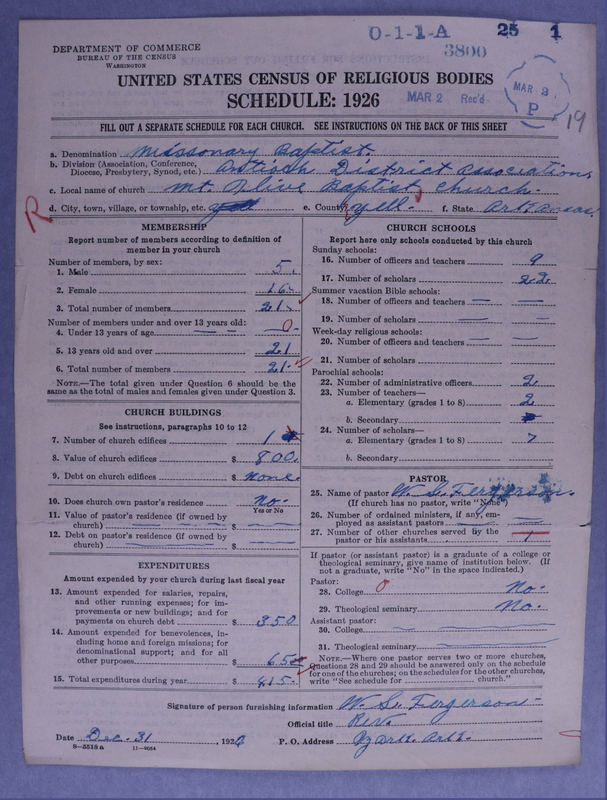 O-1-1-A
25 1
3800
DEPARTMENT OF COMMERCE
BUREAU OF THE CENSUS
WASHINGTON
UNITED STATES CENSUS OF RELIGIOUS BODIES
SCHEDULE: 1926
MAR 2 Rec'd
MAR 3
P.
19
FILL OUT A SEPARATE SCHEDULE FOR EACH CHURCH. SEE INSTRUCTIONS ON THE BACK OF THIS SHEET
a. Denomination Missonary Baptist
b. Division (Association, Conference, Diocese, Presbytery, Synod, etc.) Antioch District Associations
c. Local name of church Mt Olive Baptist Church.
R d. City, town, village, or township, etc. Yell e. County Yell. f. State Arkansas.
MEMBERSHIP
Report number of members according to definition of
member in your church
Number of members, by sex:
1. Male 5
2. Female 16
3. Total number of members 21
Number of members under and over 13 years old:
4. Under 13 years of age 0
5. 13 years old and over 21
6. Total number of members 21
NOTE.—The total given under Question 6 should be
same as the total of males and females given under Question 3.
CHURCH BUILDINGS
See instructions, paragraphs 10 to 12
7. Number of church edifices 1
8. Value of church edifices $ 800.
9. Debt on church edifices $ None.
10. Does church own pastor's residence No.
Yes or No
11. Value of pastor's residence (if owned by
church) $
12. Debt on pastor's residence (if owned by
church) $
EXPENDITURES
Amount expended by your church during last fiscal year
13. Amount expended for salaries, repairs,
and other running expenses; for im-
provements or new buildings; and for
payments on church debt $ 350
14. Amount expended for benevolences, in-
cluding home and foreign missions; for
denominational support; and for all
other purposes $ 65
15. Total expenditures during year $ 415
CHURCH SCHOOLS
Report here only schools conducted by this church
Sunday schools:
16. Number of officers and teachers 9
17. Number of scholars 22
Summer vacation Bible schools:
18. Number of officers and teachers
19. Number of scholars
Week-day religious schools:
20. Number of officers and teachers
21. Number of scholars
Parochial schools:
22. Number of administrative officers 2
23. Number of teachers—
a. Elementary (grades 1 to 8) 2
b. Secondary
24. Number of scholars—
a. Elementary (grades 1 to 8) 7
b. Secondary
PASTOR
25. Name of pastor W. S. Fergerson.
(If church has no pastor, write "None")
26. Number of ordained ministers, if any, em-
ployed as assistant pastors
27. Number of other churches served by the
pastor or his assistants 1
If pastor (or assistant pastor) is a graduate of a college or
theological seminary, give name of institution below. (If
not a graduate, write "No" in the space indicated.)
Pastor: 0
28. College No.
29. Theological seminary No.
Assistant pastor:
30. College
31. Theological seminary
NOTE.—Where one pastor serves two or more churches,
Questions 28 and 29 should be answered only on the schedule
for one of the churches; on the schedules for the other churches,
write "See schedule for church."
Signature of person furnishing information W. S. Fergerson
Official title Rev.
Date Dec. 31, 1926 P. O. Address Ozark. Ark.
S—3518a 11—9084